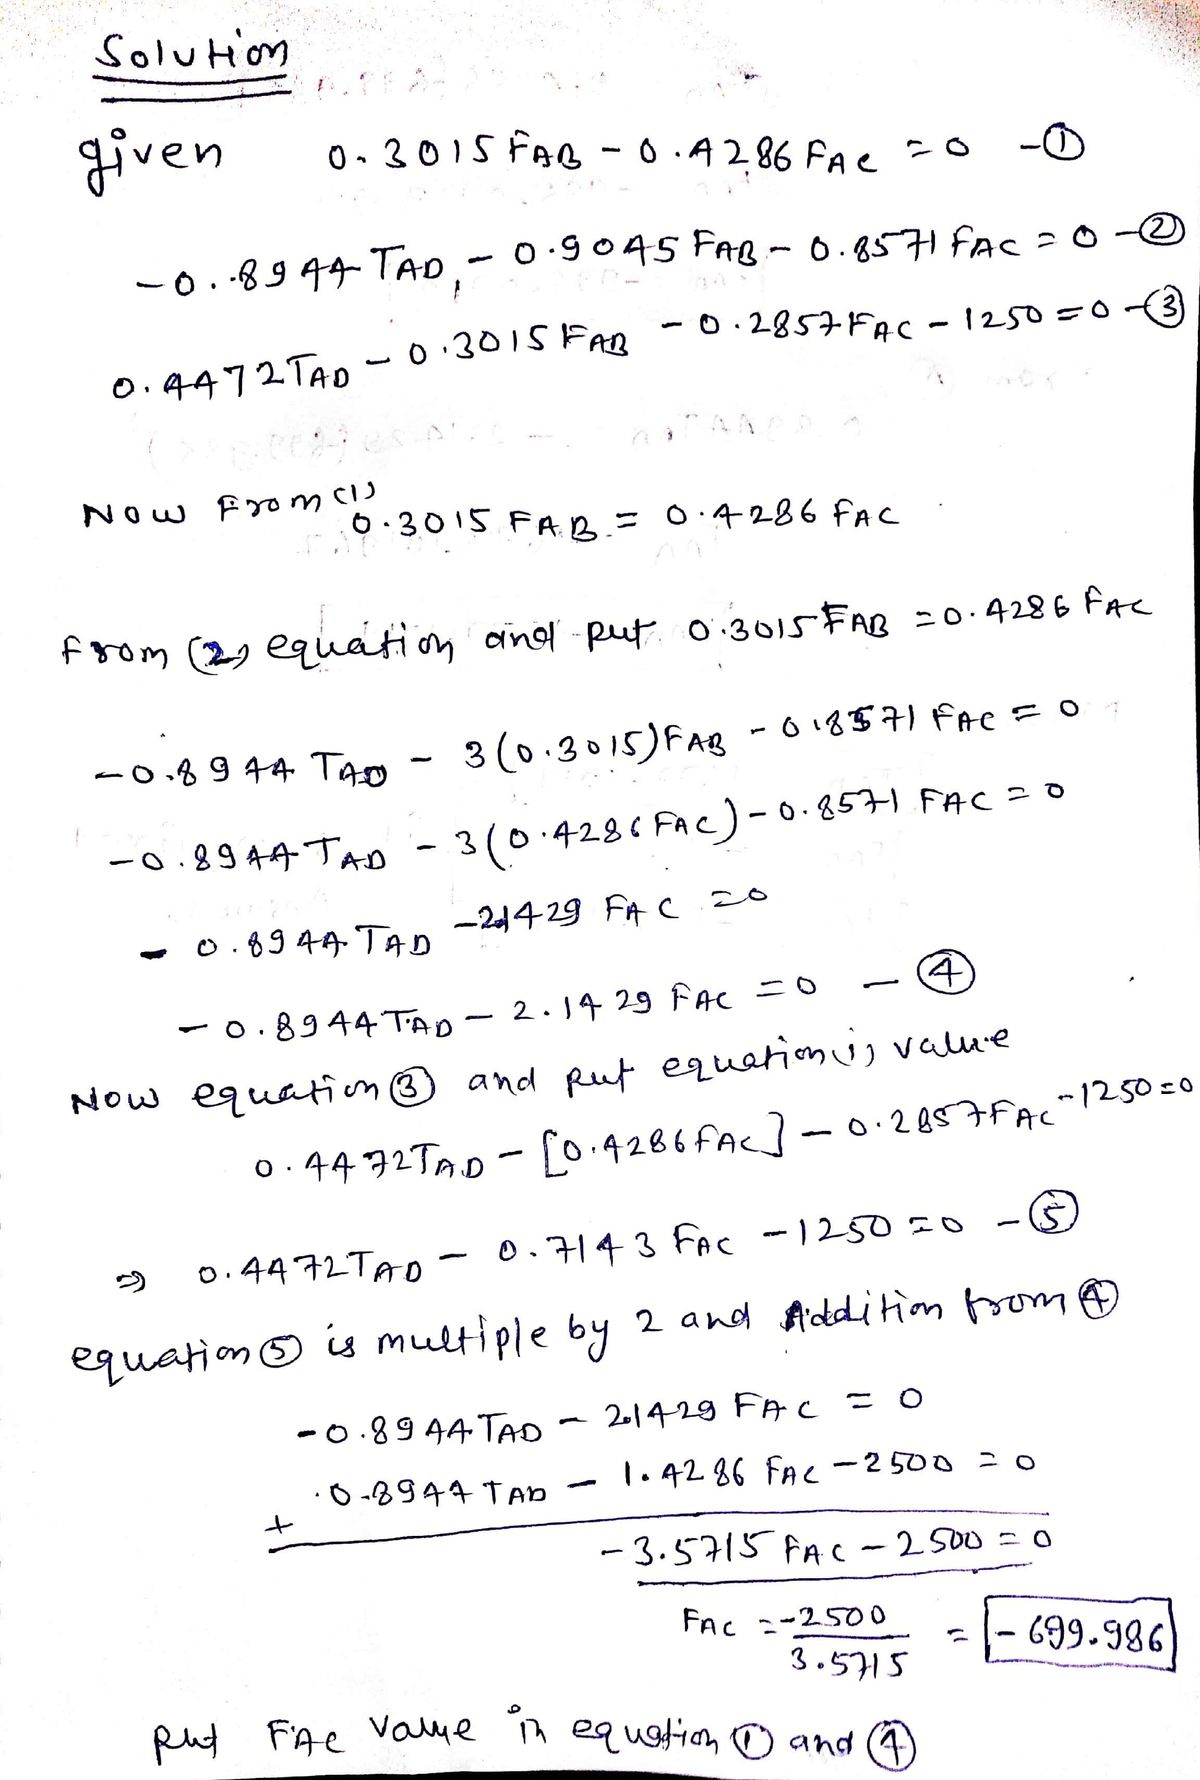 Solution
given 0.3015 FAB - 0.4286 FAC = 0 - ①
-0.8944 TAD, - 0.9045 FAB - 0.8571 FAC = 0 - ②
0.4472 TAD - 0.3015 FAB - 0.2857 FAC - 1250 = 0 - ③
Now From (1)
0.3015 FAB = 0.4286 FAC
From (2) equation and put 0.3015 FAB = 0.4286 FAC
-0.8944 TAD - 3(0.3015)FAB - 0.8571 FAC = 0
-0.8944 TAD - 3(0.4286 FAC) - 0.8571 FAC = 0
- 0.8944 TAD - 2.1429 FAC = 0
- 0.8944 TAD - 2.1429 FAC = 0 - ④
Now equation ③ and put equation (i) value
0.4472 TAD - [0.4286 FAC] - 0.2857 FAC - 1250 = 0
⇒ 0.4472 TAD - 0.7143 FAC - 1250 = 0 - ⑤
equation ⑤ is multiple by 2 and Addition from ④
-0.8944 TAD - 2.1429 FAC = 0
0.8944 TAD - 1.4286 FAC - 2500 = 0
+
- 3.5715 FAC - 2500 = 0
FAC = -2500 / 3.5715 = - 699.986
put FAC value in equation ① and ④